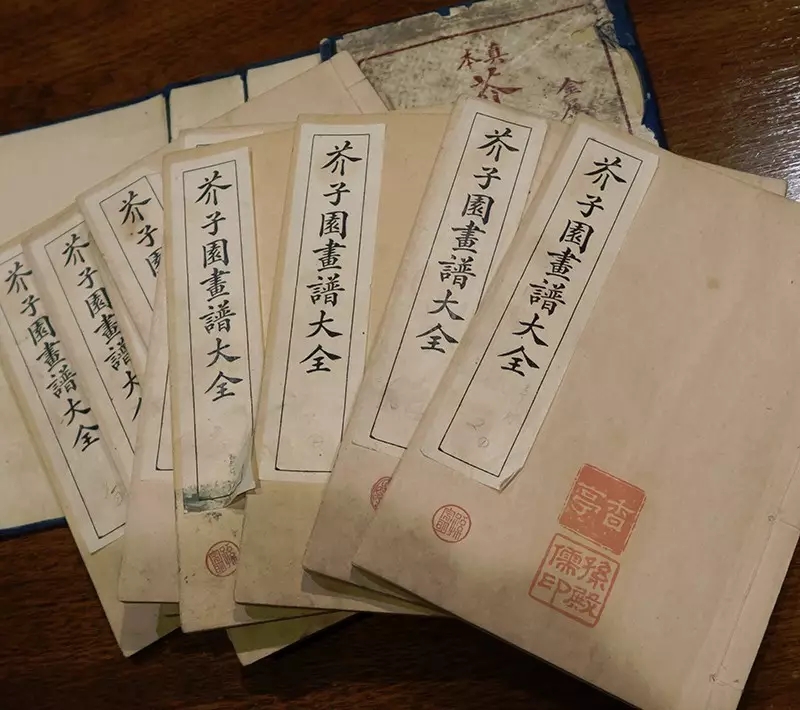 真本
芥
芥子園畫譜大全
芥子園畫譜大
芥子園
芥子園畫譜大全
芥子園畫譜大全
芥子園畫譜大全
芥子園畫譜大全
香亭
孫殿儒印